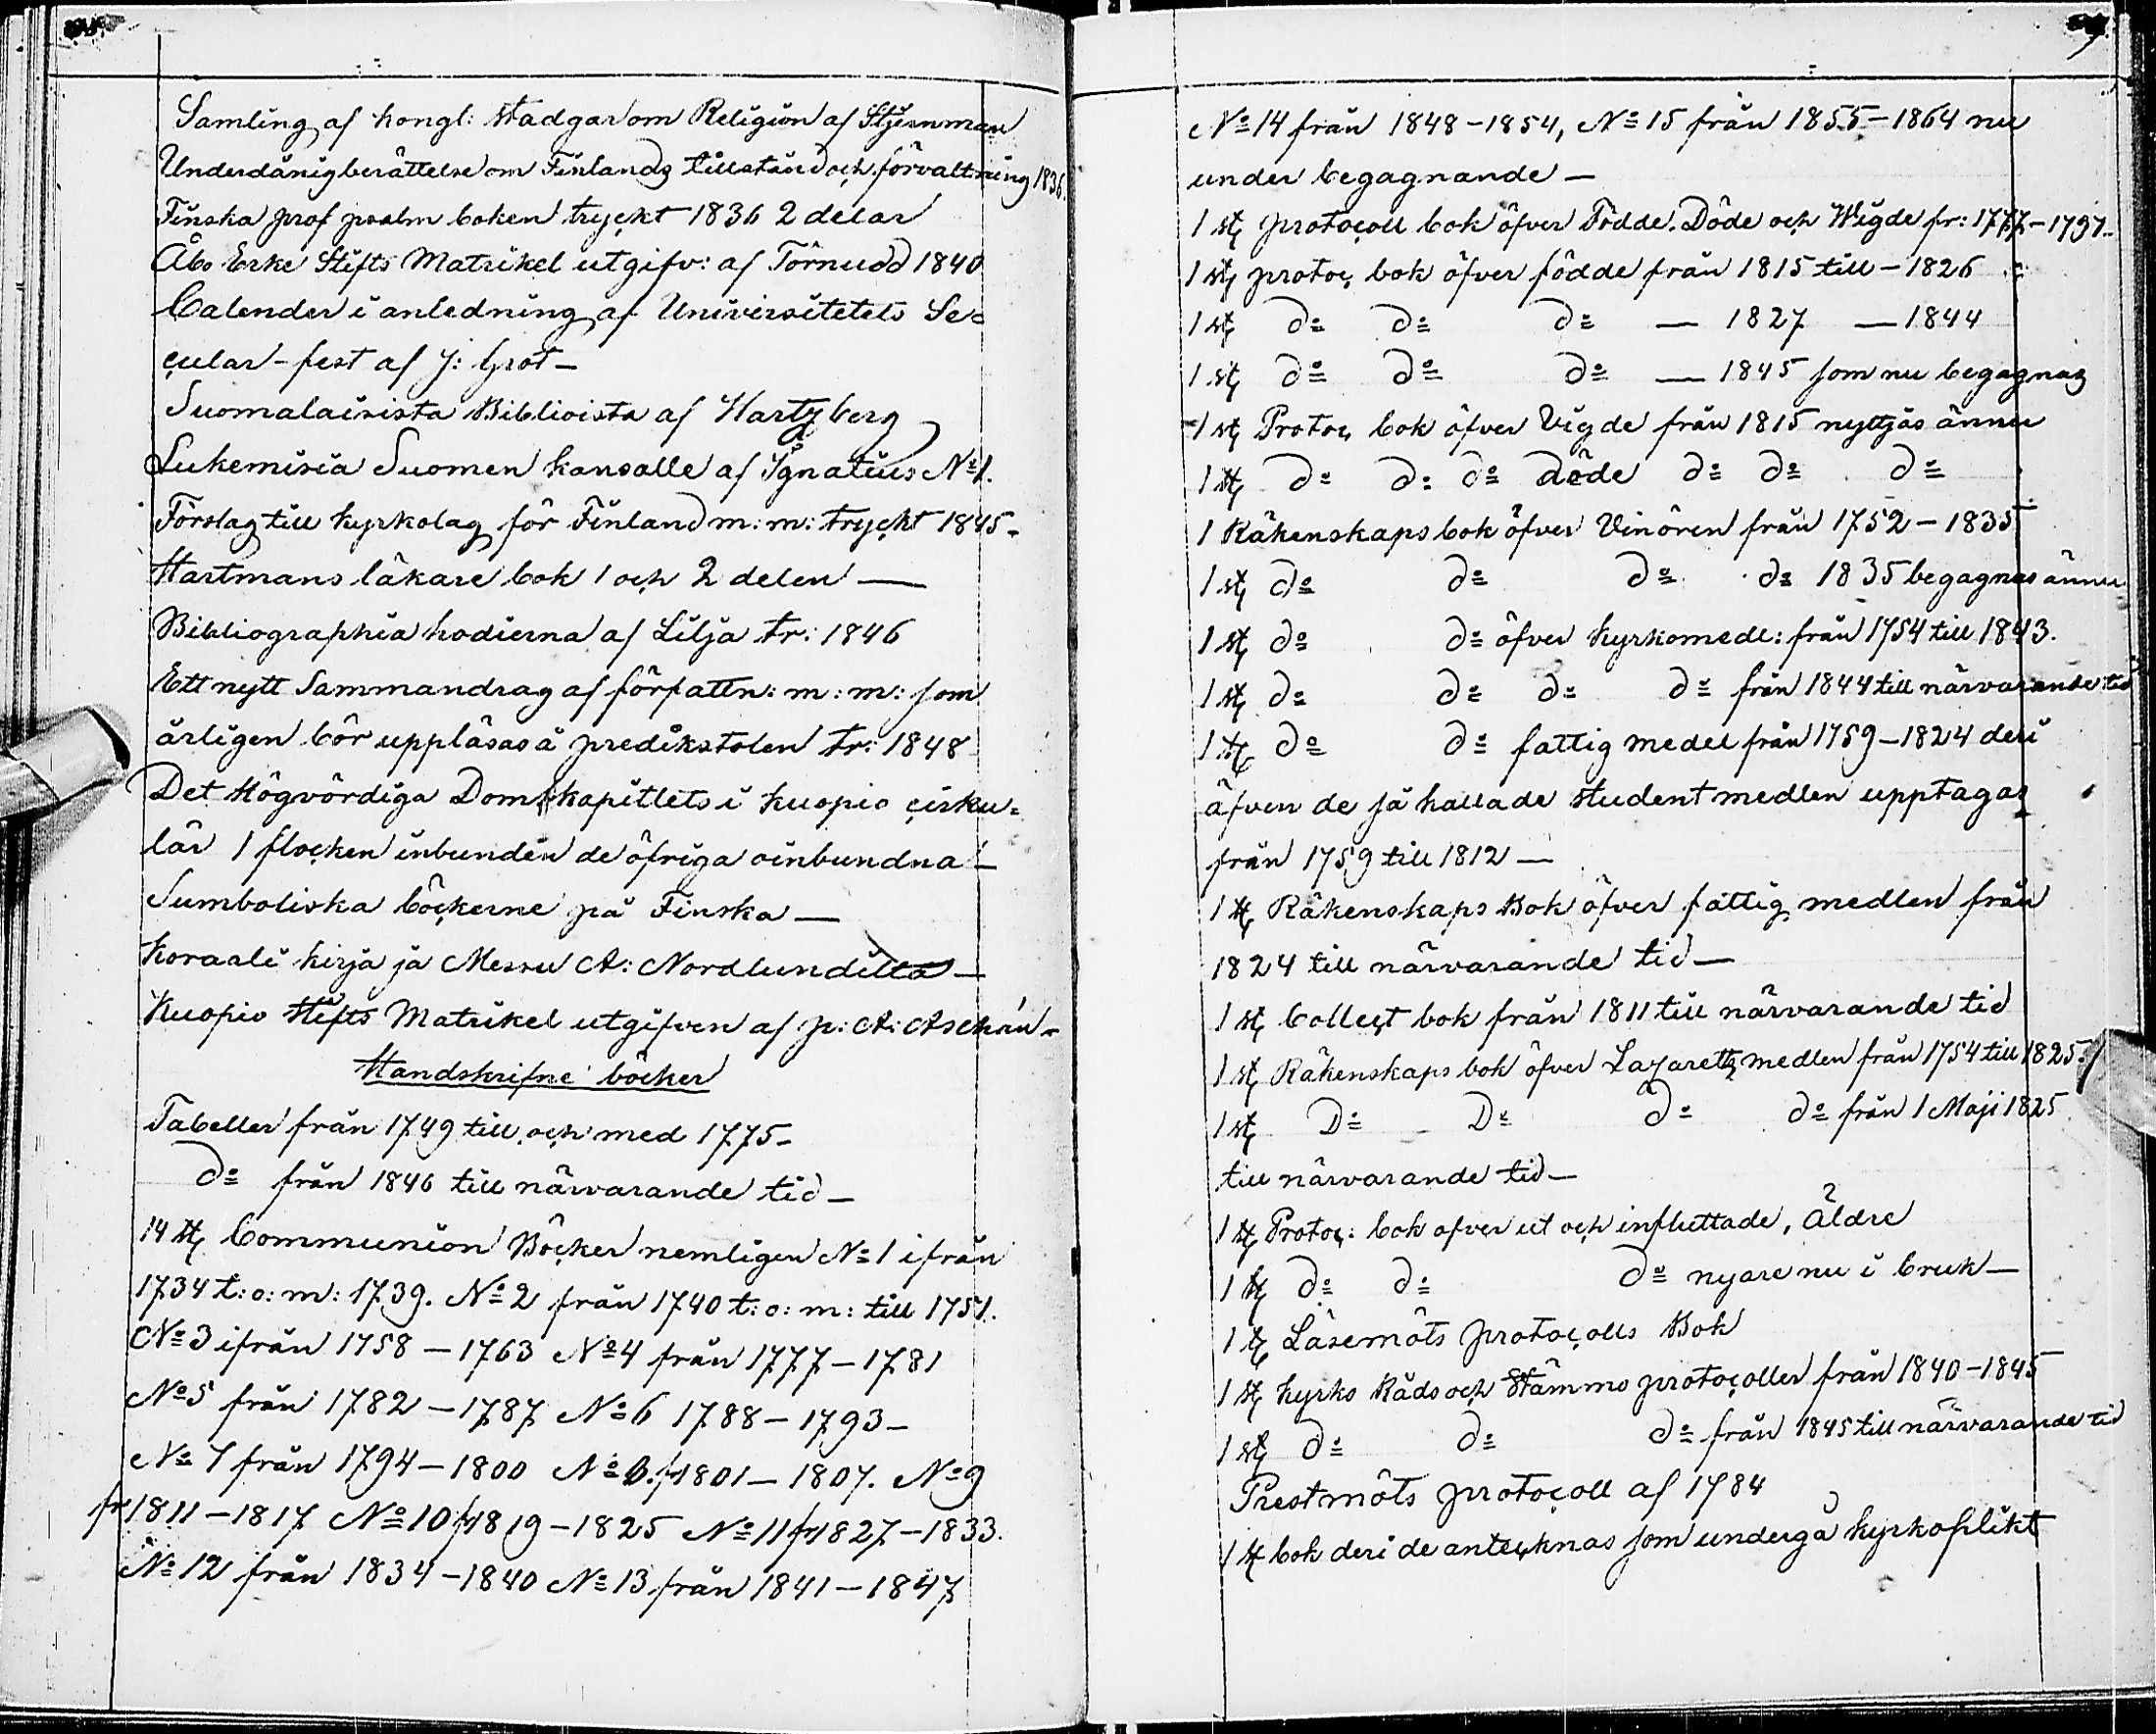 Samling af kongl: stadgar om Religion af Stjernman
Underdånig berättelse om Finlands tillstånd och förvaltning 1836.
Finska prof psalm boken tryckt 1836 2 delar
Åbo Erke Stifts Matrikel utgifv: af Törnudd 1840
Calender i anledning af Universitetets Se=
cular-fest af J: Grot—
Suomalaisista Biblioista af Hartzberg
Lukemisia Suomen kansalle af Ignatius No 1.
Förslag till kyrkolag för Finland m: m: tryckt 1845-
Hartmans läkare bok 1 och 2 delen —
Bibliographia hodierna af Lilja tr: 1846
Ett nytt Sammandrag af författn: m: m: som
årligen bör uppläsas å predikstolen tr: 1848
Det Högvördiga Domkapitlets i Kuopio cirku=
lär 1 flocken inbunden de öfriga oinbundna—
Sumboliska böckerne på Finska —
Koraali kirja ja Messu A: Nordlundilta —
Kuopio Stifts Matrikel utgifven af J: A: Aschan-
Handskrifne böcker
Tabeller från 1749 till och med 1775-
do från 1846 till närvarande tid —
14 st Communion Böcker nemligen No 1 ifrån
1734 t: o: m: 1739. No 2 från 1740 t: o: m: till 1751.
No 3 ifrån 1758 — 1763 No 4 från 1777 — 1781
No 5 från 1782 — 1787 No 6 1788 — 1793 —
No 7 från 1794 — 1800 No 8. fr 1801 — 1807. No 9
fr 1811 — 1817 No 10 fr 1819 — 1825 No 11 fr 1827 — 1833.
No 12 från 1834 — 1840 No 13 från 1841 — 1847
No 14 från 1848 - 1854, No 15 från 1855 — 1864 nu
under begagnande —
1 st protocoll bok öfver Födde. Döde och Wigde fr: 1777 — 1797-
1 st protoc bok öfver födde från 1815 till — 1826
1 st do do do — 1827 — 1844
1 st do do do — 1845 som nu begagnas
1 st Protoc bok öfver Vigde från 1815 nyttjas ännu
1 st do do do döde do do do
1 Räkenskaps bok öfver Vinören från 1752 — 1835
1 st do do do do 1835 begagnas ännu
1 st do do öfver kyrkomedl: från 1754 till 1843.
1 st do do do do från 1844 till närvarande tid
1 st do do fattig medel från 1759 — 1824 deri
äfven de så kallade student medlen upptagas
från 1759 till 1812 —
1 st Räkenskaps Bok öfver fattig medlen från
1824 till närvarande tid —
1 st Collect bok från 1811 till närvarande tid
1 st Räkenskaps bok öfver Lazaretts medlen från 1754 till 1825.
1 st Do Do do do från 1 Maji 1825
till närvarande tid —
1 st Protoc: bok öfver ut och influttade, Äldre
1 st do do do nyare nu i bruk —
1 st Läsemöts protocolls Bok
1 st kyrko Råds och Stämmo protocoller från 1840 — 1845
1 st do do do från 1845 till närvarande tid
Prestmöts protocoll af 1784
1 st bok deri de antecknas som undergå kyrkoplikt